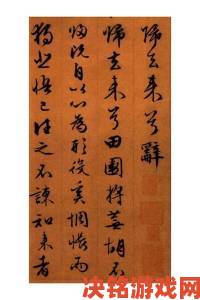 歸去来兮辭
歸去来兮田園将蕪胡不
歸既自以心為形役奚惆悵而
獨悲悟已往之不諫知来者
决铭游戏网